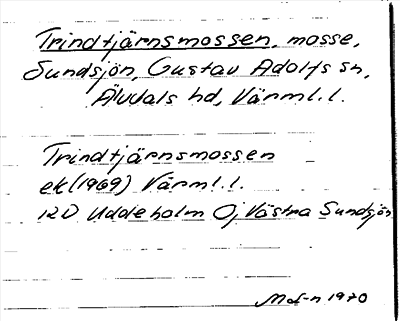 Trindtjärnsmossen, mosse,
Sundsjön, Gustav Adolfs sn,
Älvdals hd, Värml. l.
Trindtjärnsmossen
ek (1969) Värml. l.
12D Uddeholm 0j Västra Sundsjön
1970